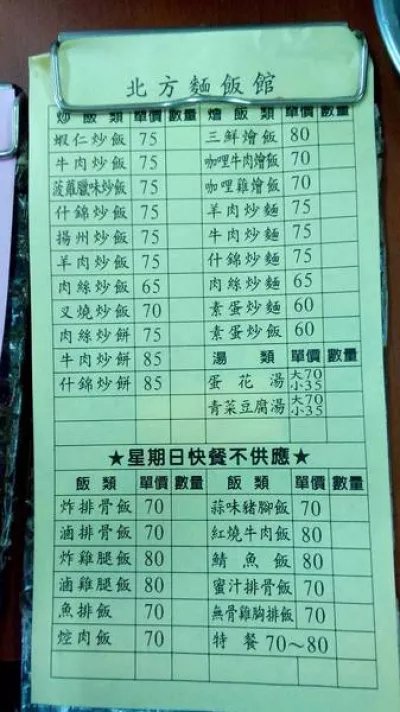 北方麵飯館
炒飯類 單價 數量 燴飯類 單價 數量
蝦仁炒飯 75 三鮮燴飯 80
牛肉炒飯 75 咖哩牛肉燴飯 70
菠蘿臘味炒飯 75 咖哩雞燴飯 70
什錦炒飯 75 羊肉炒麵 75
揚州炒飯 75 牛肉炒麵 75
羊肉炒飯 75 什錦炒麵 75
肉絲炒飯 65 肉絲炒麵 65
叉燒炒飯 70 素蛋炒麵 60
肉絲炒餅 75 素蛋炒飯 60
牛肉炒餅 85 湯類 單價 數量
什錦炒餅 85 蛋花湯 大70 小35
青菜豆腐湯 大70 小35
★星期日快餐不供應★
飯類 單價 數量 飯類 單價 數量
炸排骨飯 70 蒜味豬腳飯 70
滷排骨飯 70 紅燒牛肉飯 80
炸雞腿飯 80 鯖魚飯 80
滷雞腿飯 80 蜜汁排骨飯 70
魚排飯 70 無骨雞胸排飯 70
焢肉飯 70 特餐 70~80